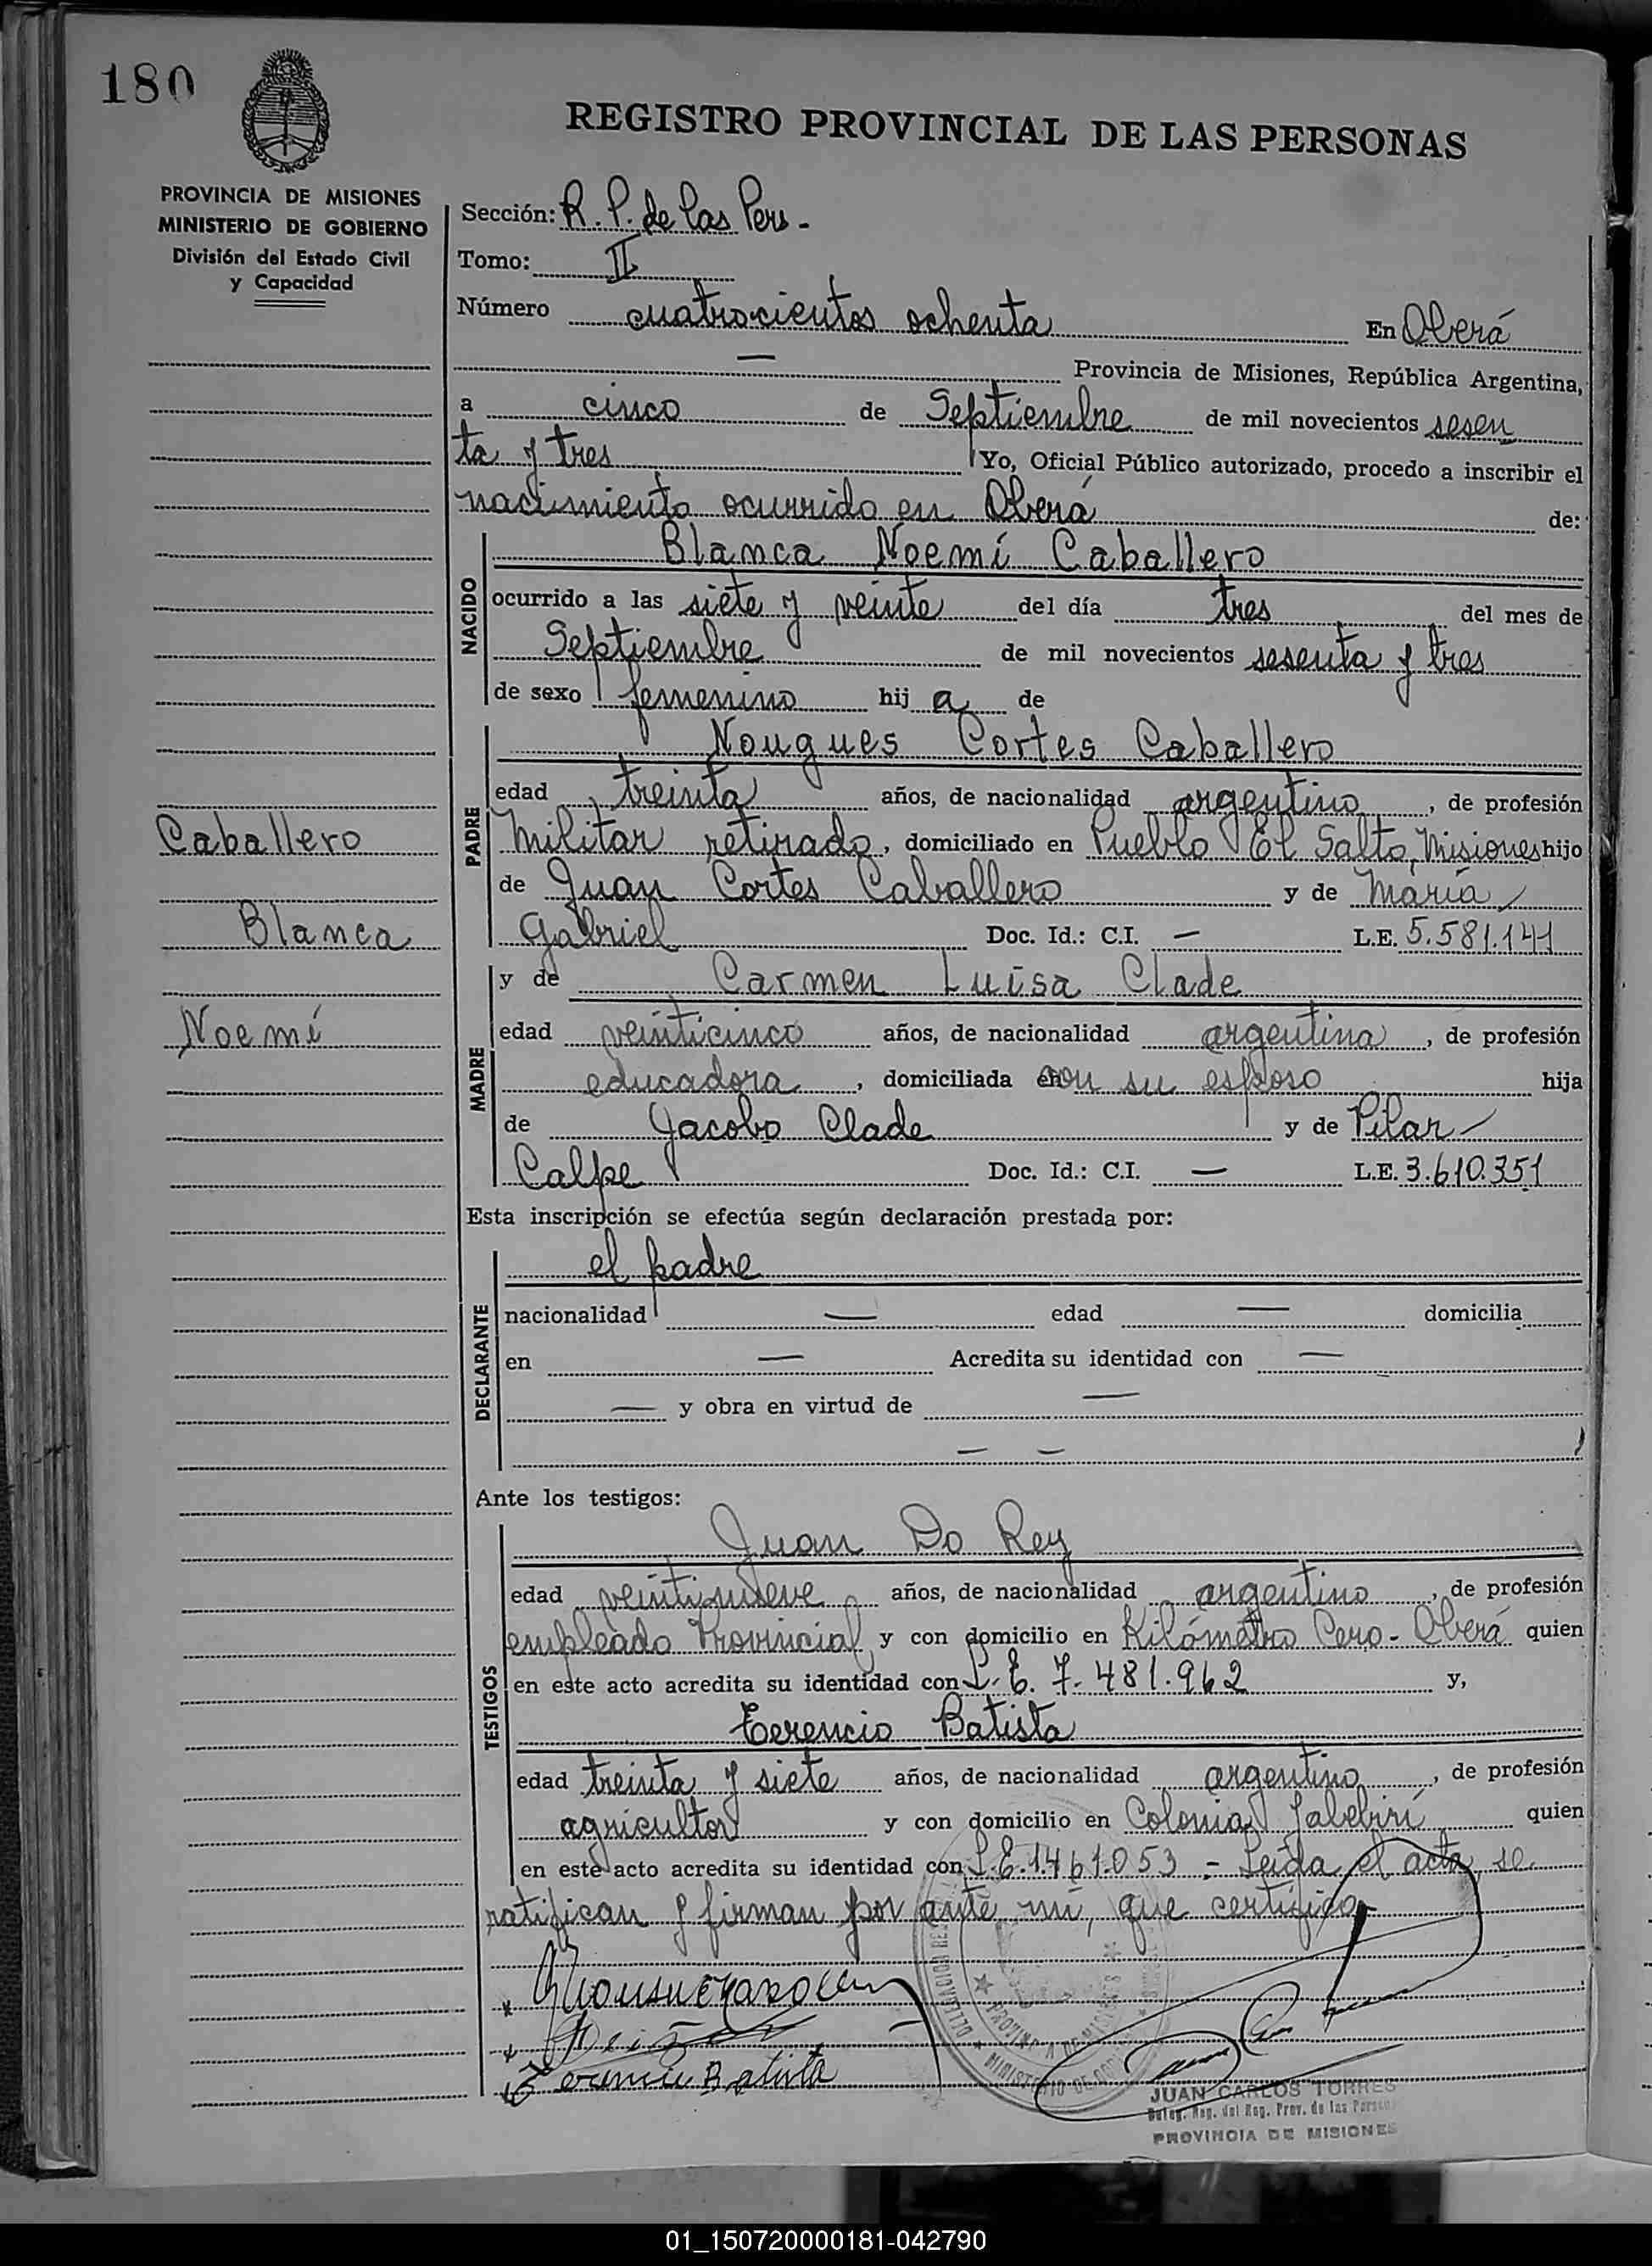 180
REGISTRO PROVINCIAL DE LAS PERSONAS
PROVINCIA DE MISIONES
MINISTERIO DE GOBIERNO
División del Estado Civil
y Capacidad
Sección: R. P. de las Pers -
Tomo: II
Número cuatrocientos ochenta En Oberá
— Provincia de Misiones, República Argentina,
a cinco de Septiembre de mil novecientos sesen
ta y tres Yo, Oficial Público autorizado, procedo a inscribir el
nacimiento ocurrido en Oberá de:
NACIDO
Blanca Noemí Caballero
ocurrido a las siete y veinte del día tres del mes de
Septiembre de mil novecientos sesenta y tres
de sexo femenino hij a de
PADRE
Nougues Cortes Caballero
edad treinta años, de nacionalidad argentino, de profesión
Militar retirado, domiciliado en Pueblo El Salto, Misiones hijo
de Juan Cortes Caballero y de María
Gabriel Doc. Id.: C.I. — L.E. 5.581.141
Caballero
Blanca
Noemí
MADRE
y de Carmen Luisa Clade
edad veinticinco años, de nacionalidad argentina, de profesión
educadora, domiciliada con su esposo hija
de Jacobo Clade y de Pilar
Calpe Doc. Id.: C.I. — L.E. 3.610.351
Esta inscripción se efectúa según declaración prestada por:
DECLARANTE
el padre
nacionalidad — edad — domicilia
en — Acredita su identidad con —
— y obra en virtud de —
— —
Ante los testigos:
TESTIGOS
Juan Do Rey
edad veintinueve años, de nacionalidad argentino, de profesión
empleado Provincial y con domicilio en Kilómetro Cero - Oberá quien
en este acto acredita su identidad con L. E. 7.481.962 y,
Terencio Batista
edad treinta y siete años, de nacionalidad argentino, de profesión
agricultor y con domicilio en Colonia Yabebirí quien
en este acto acredita su identidad con L.E. 1.461.053 - Leída el acta, se
ratifican y firman por ante mí, que certifico
Terencio Batista
JUAN CARLOS TORRES
Deleg. Reg. del Reg. Prov. de las Personas
PROVINCIA DE MISIONES
01_150720000181-042790